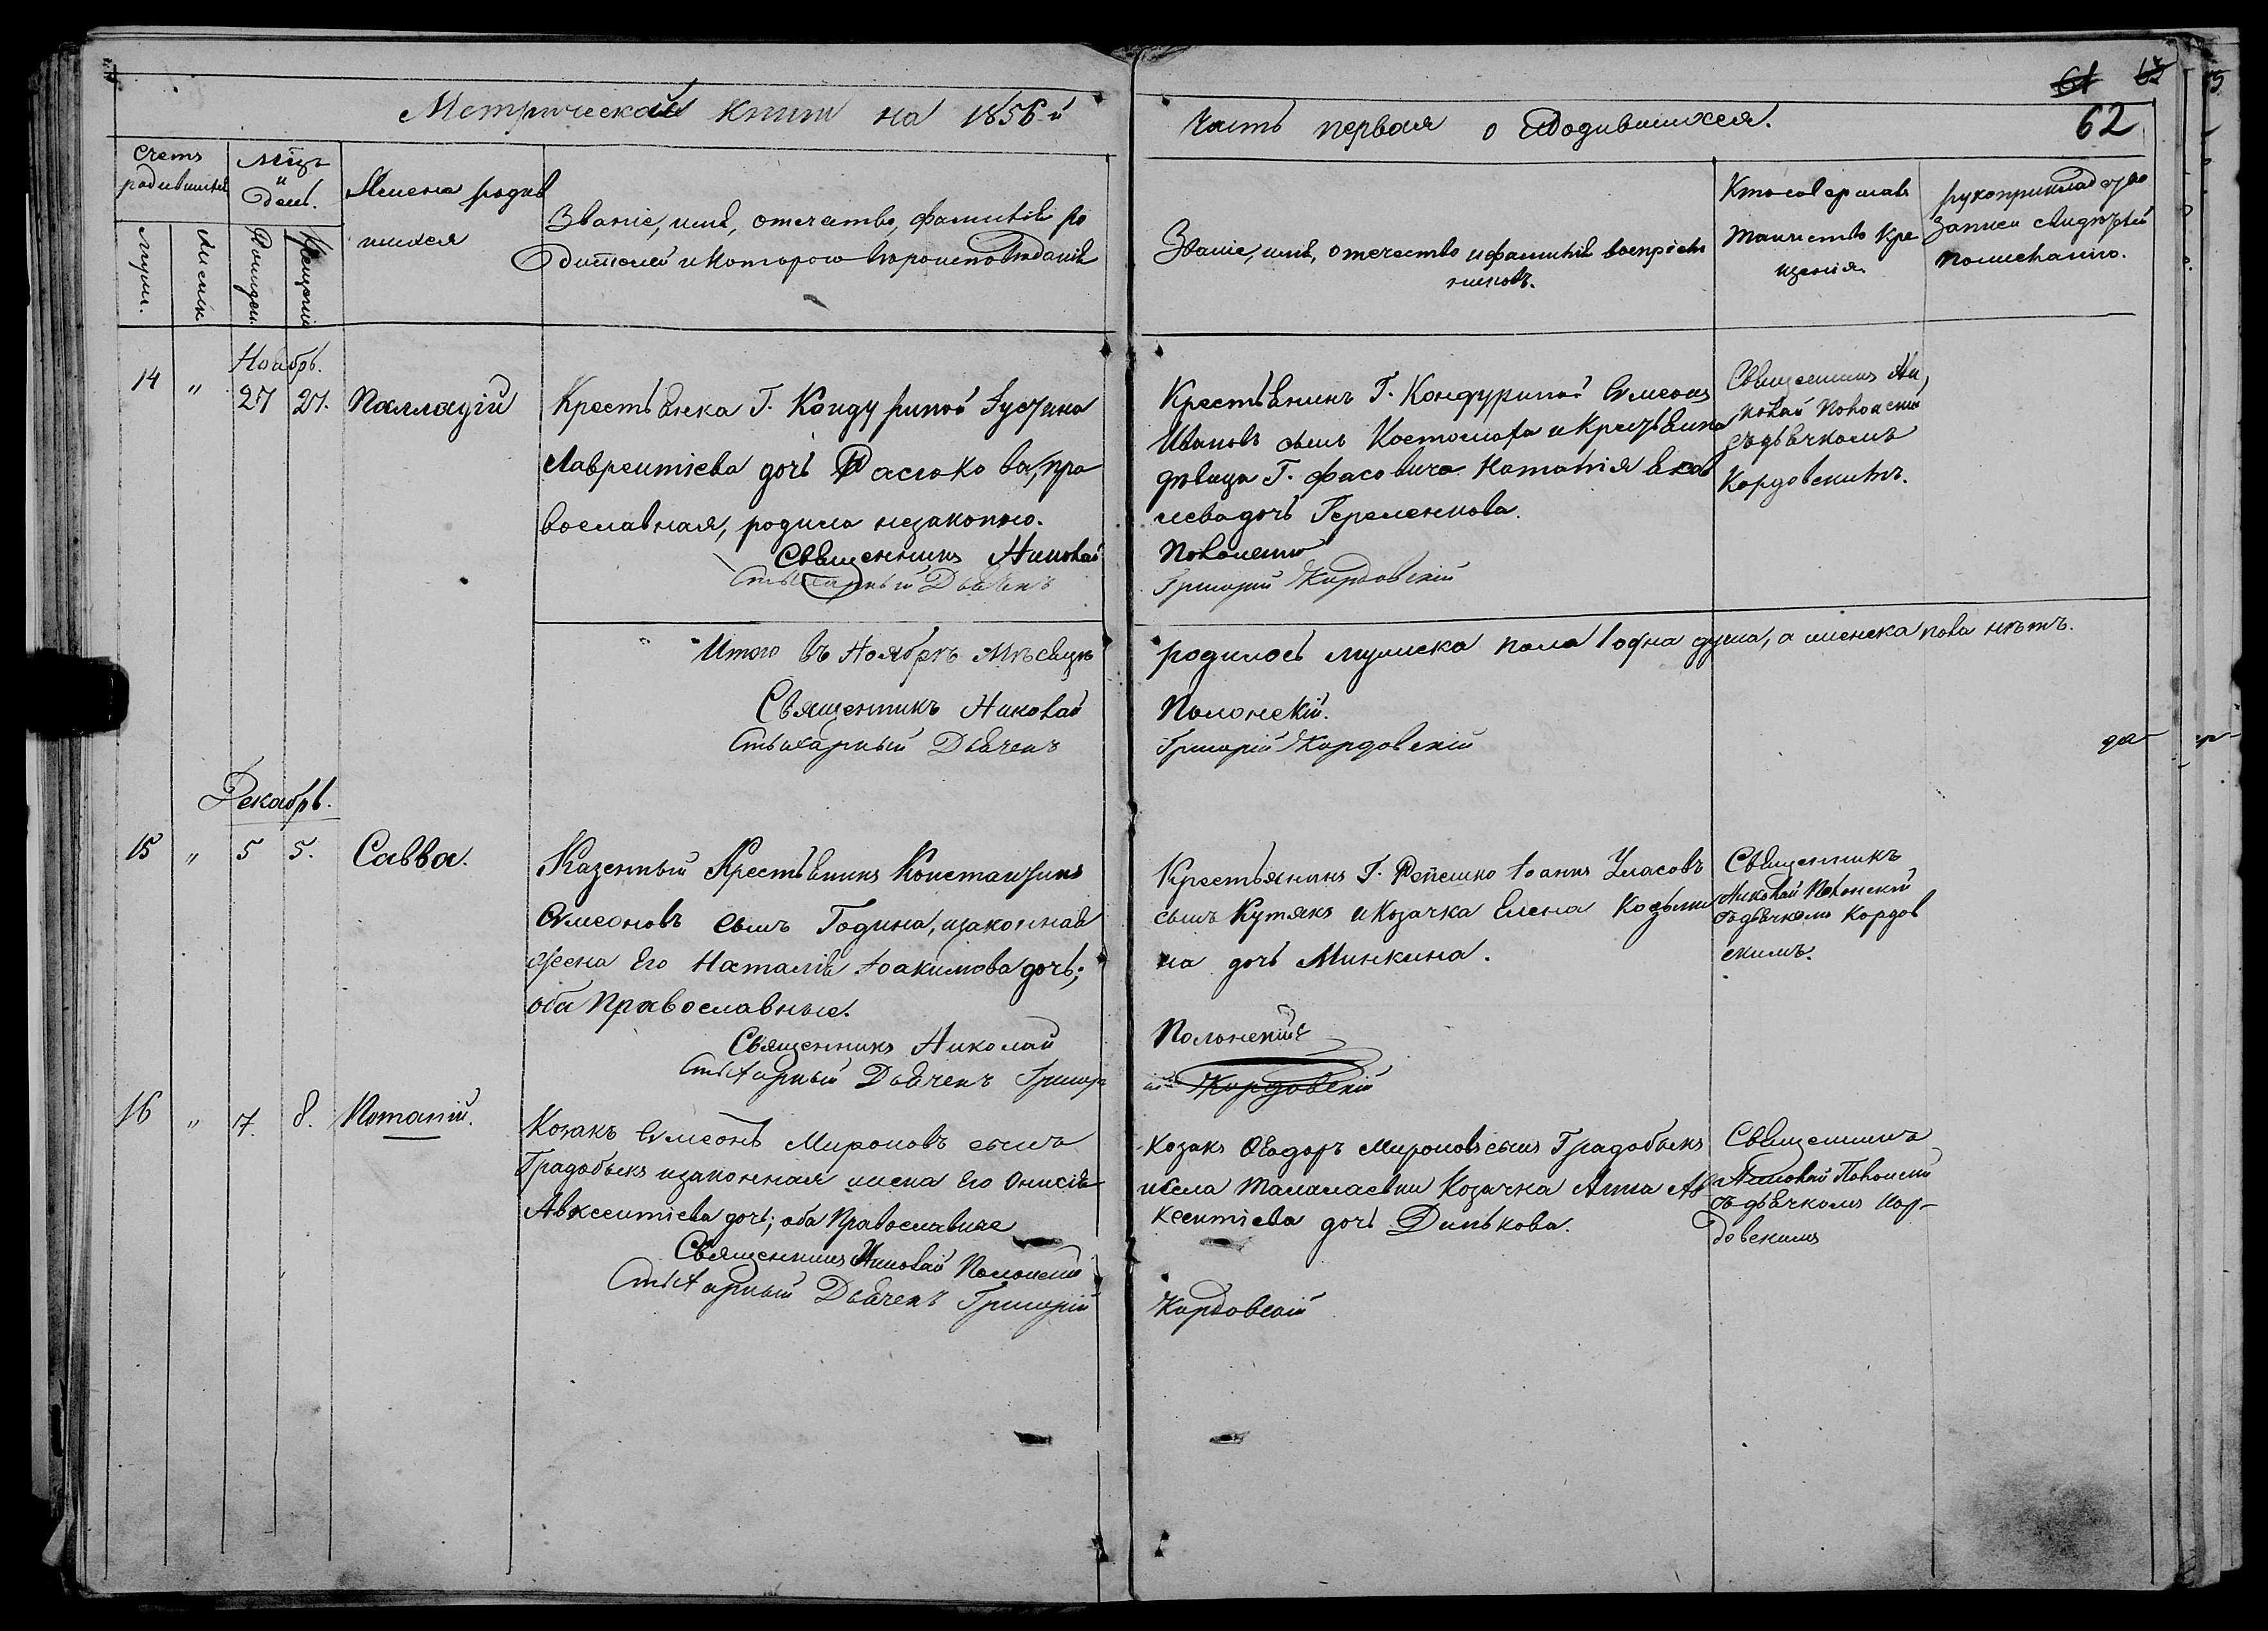 61 62
Метрической книги на 1856-й
Часть первая о Родившихся.
62
Счетъ родившихся
Мцъ и День.
Имена родив
шихся
Званіе, имя, отечество, фамилія ро
дителей и котораго вѣроисповѣданія
Званіе, имя, отечество и фамилія воспріем
никовъ.
Кто совершалъ
таинство кре
щенія
рукоприкладство
записи свидѣтелей
Мужск.
Женск.
Рожден.
Крещенія
Ноябрь.
14 " 27 27. Палладій
Крестьянка Г. Кондуриной Іустина
Лаврентіева дочь Расюкова, пра
вославная, родила незаконно.
Священникъ Николай
Стихарный Дьячекъ
Крестьянинъ Г. Кондуриной Симеонъ
Ивановъ сынъ Костомаха и крестьянка
дѣвица Г. Фасовича Наталія Яков
лева дочь Гереленкова.
Полонскій
Григорій Кордовскій
Священникъ Ни
колай Полонскій
съ дьячкомъ
Кордовскимъ.
Итого въ Ноябрѣ Мѣсяцѣ
родилось мужеска пола 1 одна душа, а женска пола нѣтъ.
Священникъ Николай
Полонскій.
Стихарный Дьячекъ
Григорій Кордовскій
Декабрь.
15 " 5 5. Савва.
Казенный Крестьянинъ Константинъ
Симеоновъ сынъ Година, и законная
жена Его Наталія Іоакимова дочь;
оба Православные.
Священникъ Николай
Стихарный Дьячекъ Григор
Крестьянинъ Г. Репешко Іоаннъ Уласовъ
сынъ Кутякъ и Козачка Елена Козьми
на дочь Минкина.
Полонскій
ій Кордовскій
Священникъ
Николай Полонскій
съ дьячкомъ Кордов
скимъ.
16 " 7. 8. Потапій.
Козакъ Симеонъ Мироновъ сынъ
Градобыкъ и законная жена Его Онисія
Авксентіева дочь; оба Православные
Священникъ Николай Полонскій
Стихарный Дьячекъ Григорій
Козакъ Ѳеодоръ Мироновъ сынъ Градобыкъ
и села Таламаевки Козачка Анна Ав
ксентіева дочь Динькова.
Кордовскій
Священникъ
Николай Полонскій
съ дьячкомъ Кор-
довскимъ